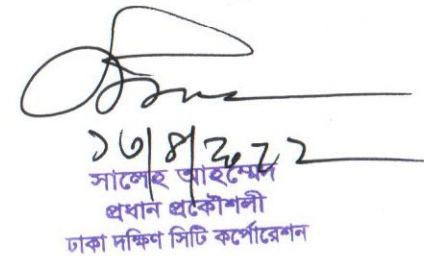 ১৩/৪/২০২২
সালেহ আহম্মেদ
প্রধান প্রকৌশলী
ঢাকা দক্ষিণ সিটি কর্পোরেশন